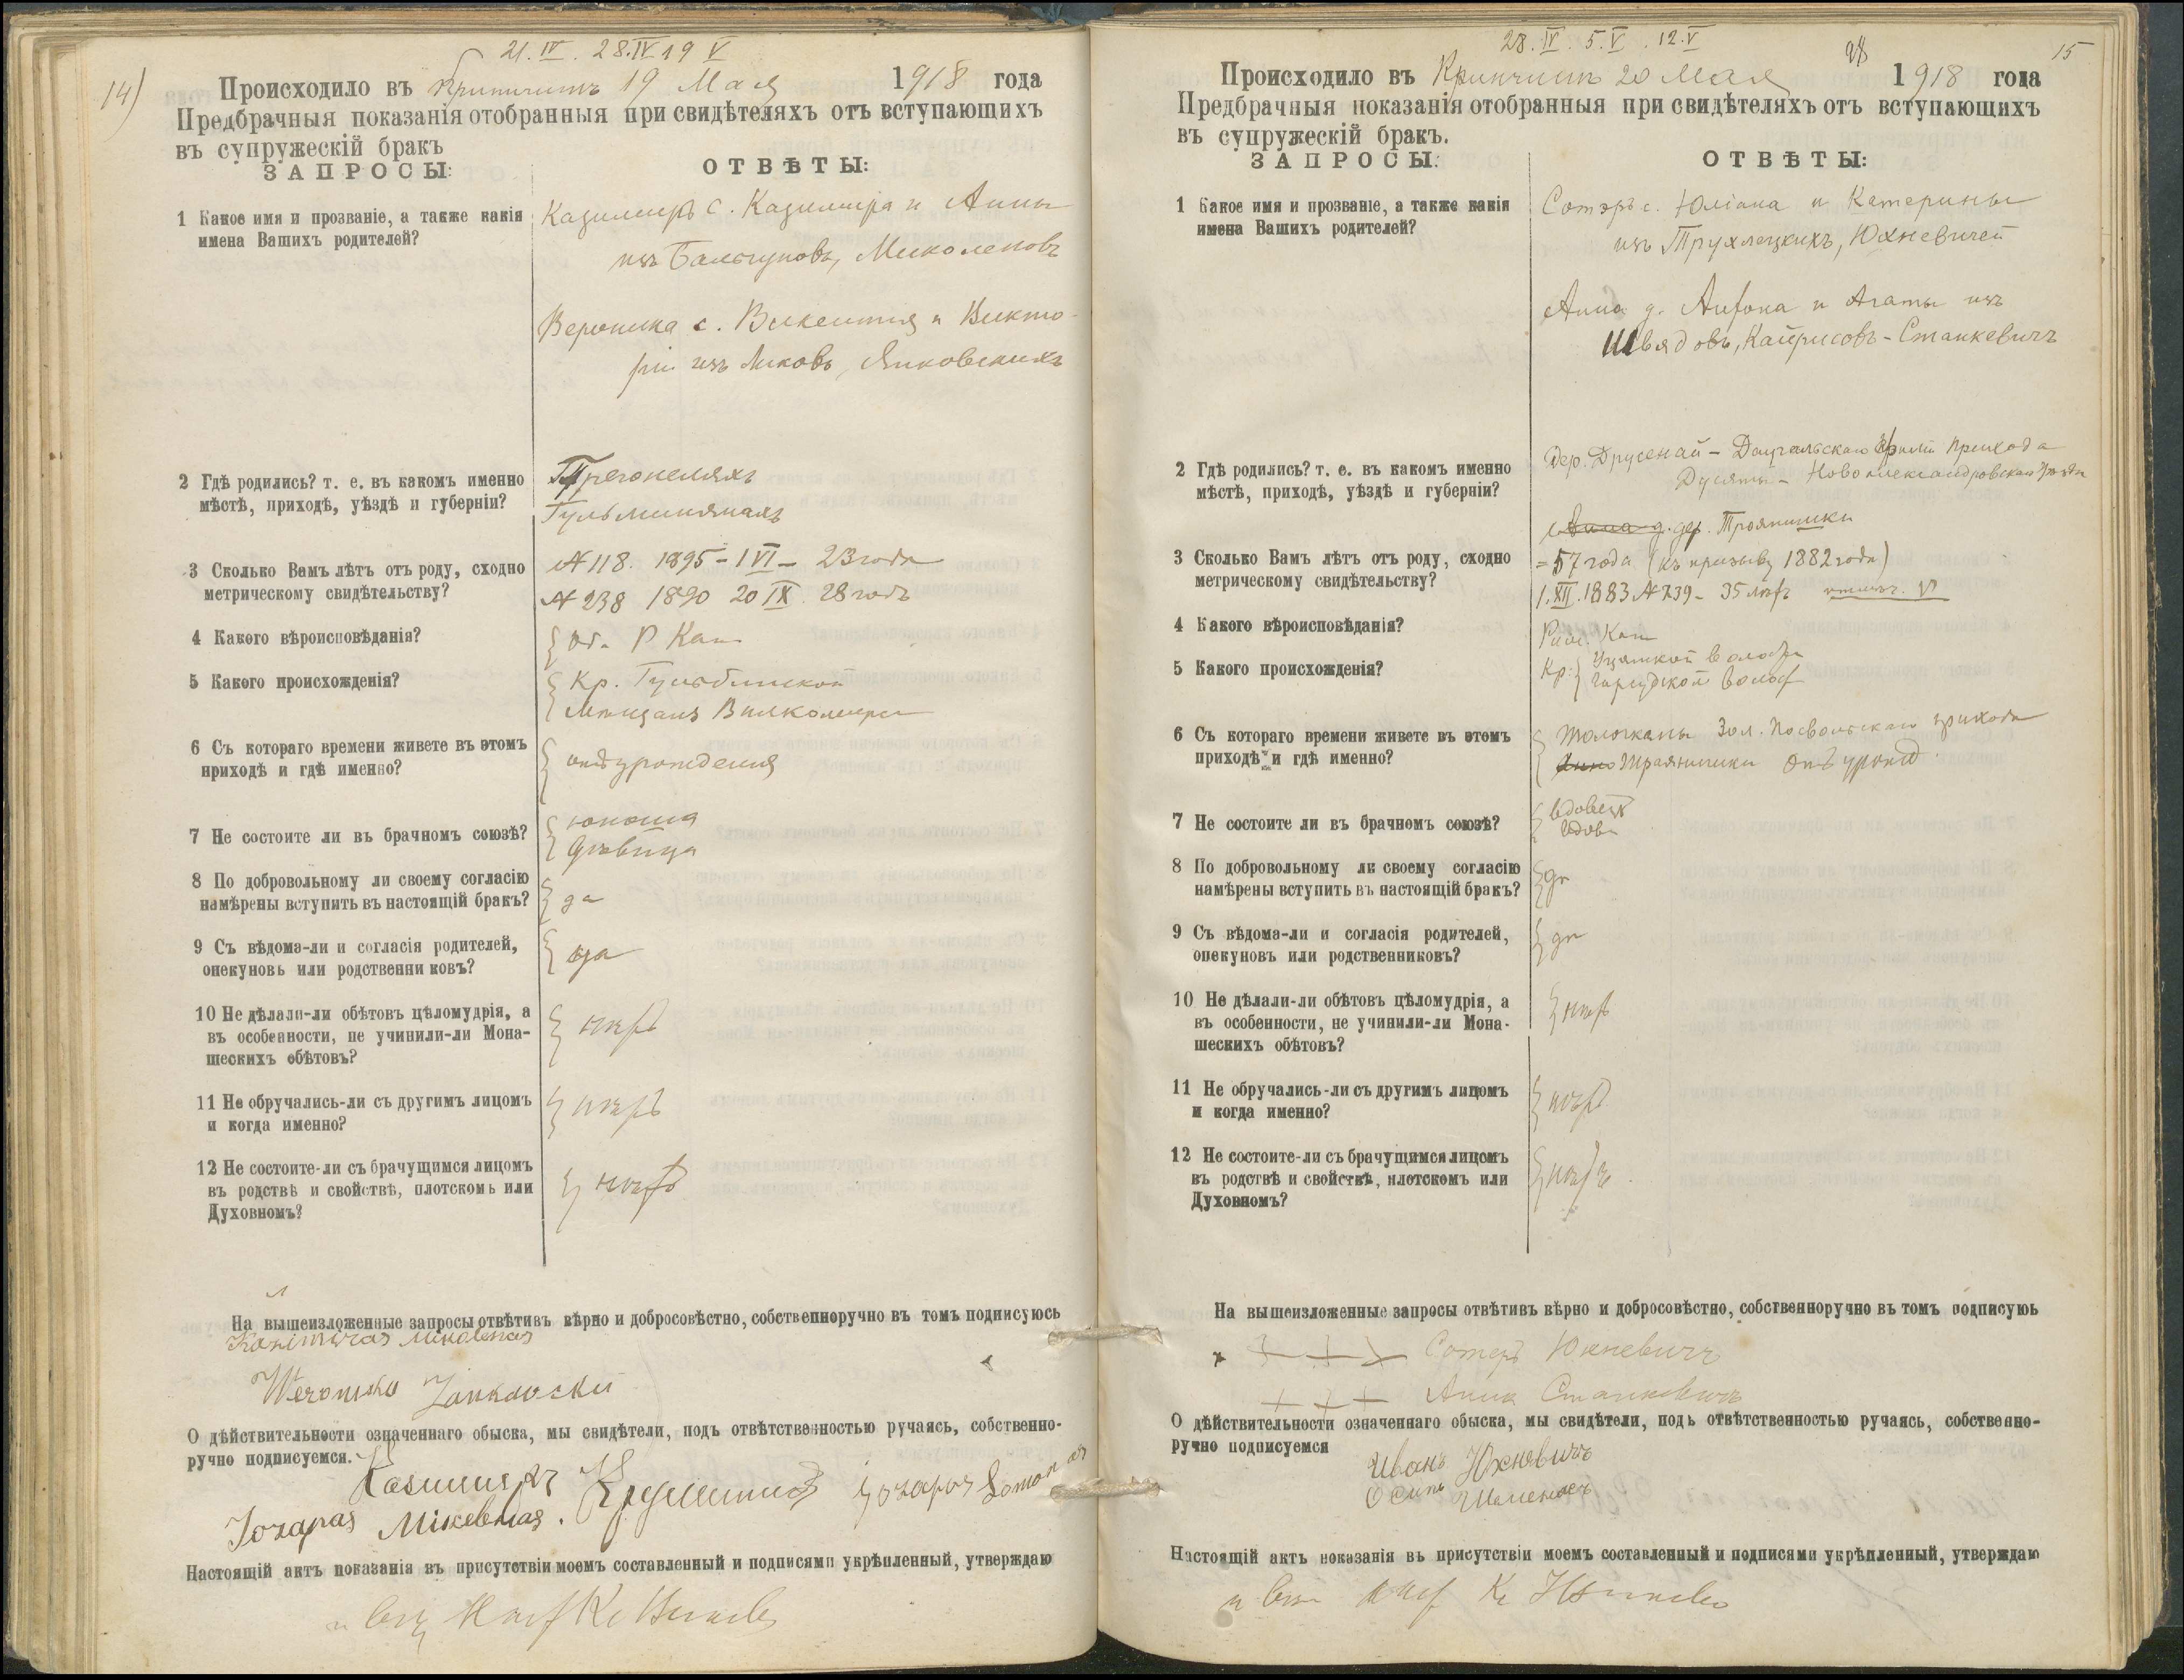 21.IV. 28.IV 19 V
14)
Происходило въ 19 Мая 1918 года
Предбрачныя показанія отобранныя при свидѣтеляхъ отъ вступающихъ
въ супружескій бракъ
ЗАПРОСЫ: ОТВѢТЫ:
1 Какое имя и прозваніе, а также какія
имена Вашихъ родителей?
Казимиръ с. Казимира и Анны
изъ Бальчуновъ, Миколеновъ
Вероника с. Викентия и Викто-
ріи изъ Янковскихъ
2 Гдѣ родились? т. е. въ какомъ именно
мѣстѣ, приходѣ, уѣздѣ и губерніи?
3 Сколько Вамъ лѣтъ отъ роду, сходно
метрическому свидѣтельству?
№ 118. 1895 - 1 VI - 23 года
№ 238 1890 20 IX. 28 годъ
4 Какого вѣроисповѣданія?
Р Кат
5 Какого происхожденія?
Кр.
Мѣщанъ Вилкомира
6 Съ котораго времени живете въ этомъ
приходѣ и гдѣ именно?
отъ урождения
7 Не состоите ли въ брачномъ союзѣ?
юноша
дѣвица
8 По добровольному ли своему согласію
намѣрены вступить въ настоящій бракъ?
да
9 Съ вѣдома-ли и согласія родителей,
опекуновъ или родственни ковъ?
да
10 Не дѣлали-ли обѣтовъ цѣломудрія, а
въ особенности, не учинили-ли Мона-
шескихъ обѣтовъ?
нѣтъ
11 Не обручались-ли съ другимъ лицомъ
и когда именно?
нѣтъ
12 Не состоите-ли съ брачущимся лицомъ
въ родствѣ и свойствѣ, плотскомъ или
Духовномъ?
нѣтъ
На вышеизложенные запросы отвѣтивъ вѣрно и добросовѣстно, собственноручно въ томъ подписуюсь
Kazimieras Mikolenas
Weronika Jankausku
О дѣйствительности означеннаго обыска, мы свидѣтели, подъ отвѣтственностью ручаясь, собственно-
ручно подписуемся.
Jozapas
Настоящій актъ показанія въ присутствіи моемъ составленный и подписями укрѣпленный, утверждаю
28.IV. 5.V. 12.V
15
Происходило въ 20 Мая 1918 года
Предбрачныя показанія отобранныя при свидѣтеляхъ отъ вступающихъ
въ супружескій бракъ.
ЗАПРОСЫ: ОТВѢТЫ:
1 Какое имя и прозваніе, а также какія
имена Вашихъ родителей?
Сотэръ с. Юліана и Катерины
изъ Трухлецкихъ, Юхневичей
Анна д. Антона и Агаты изъ
Швядовъ, Кайрисовъ - Станкевичъ
2 Гдѣ родились? т. е. въ какомъ именно
мѣстѣ, приходѣ, уѣздѣ и губерніи?
Дер. Друсенай - прихода
Дусяты - Новоалександровскаго уѣзда
дер. Троянишки
3 Сколько Вамъ лѣтъ отъ роду, сходно
метрическому свидѣтельству?
= 57 года (къ призыву 1882 года)
1.XII.1883 № 739 - 35 лѣтъ
4 Какого вѣроисповѣданія?
Рим. Кат
5 Какого происхожденія?
Кр. Уцянской волости
6 Съ котораго времени живете въ этомъ
приходѣ и гдѣ именно?
прихода
Траянишки отъ урожд
7 Не состоите ли въ брачномъ союзѣ?
вдовецъ
вдова
8 По добровольному ли своему согласію
намѣрены вступить въ настоящій бракъ?
да
9 Съ вѣдома-ли и согласія родителей,
опекуновъ или родственниковъ?
да
10 Не дѣлали-ли обѣтовъ цѣломудрія, а
въ особенности, не учинили-ли Мона-
шескихъ обѣтовъ?
нѣтъ
11 Не обручались-ли съ другимъ лицомъ
и когда именно?
нѣтъ
12 Не состоите-ли съ брачущимся лицомъ
въ родствѣ и свойствѣ, плотскомъ или
Духовномъ?
нѣтъ
На вышеизложенные запросы отвѣтивъ вѣрно и добросовѣстно, собственноручно въ томъ подписуюь
+ + + Сотеръ Юхневичъ
+ + + Анна Станкевичъ
О дѣйствительности означеннаго обыска, мы свидѣтели, подъ отвѣтственностью ручаясь, собственно-
ручно подписуемся
Иванъ Юхневичъ
Осипъ
Настоящій актъ показанія въ присутствіи моемъ составленный и подписями укрѣпленный, утверждаю